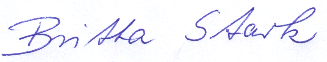 Britta Stark